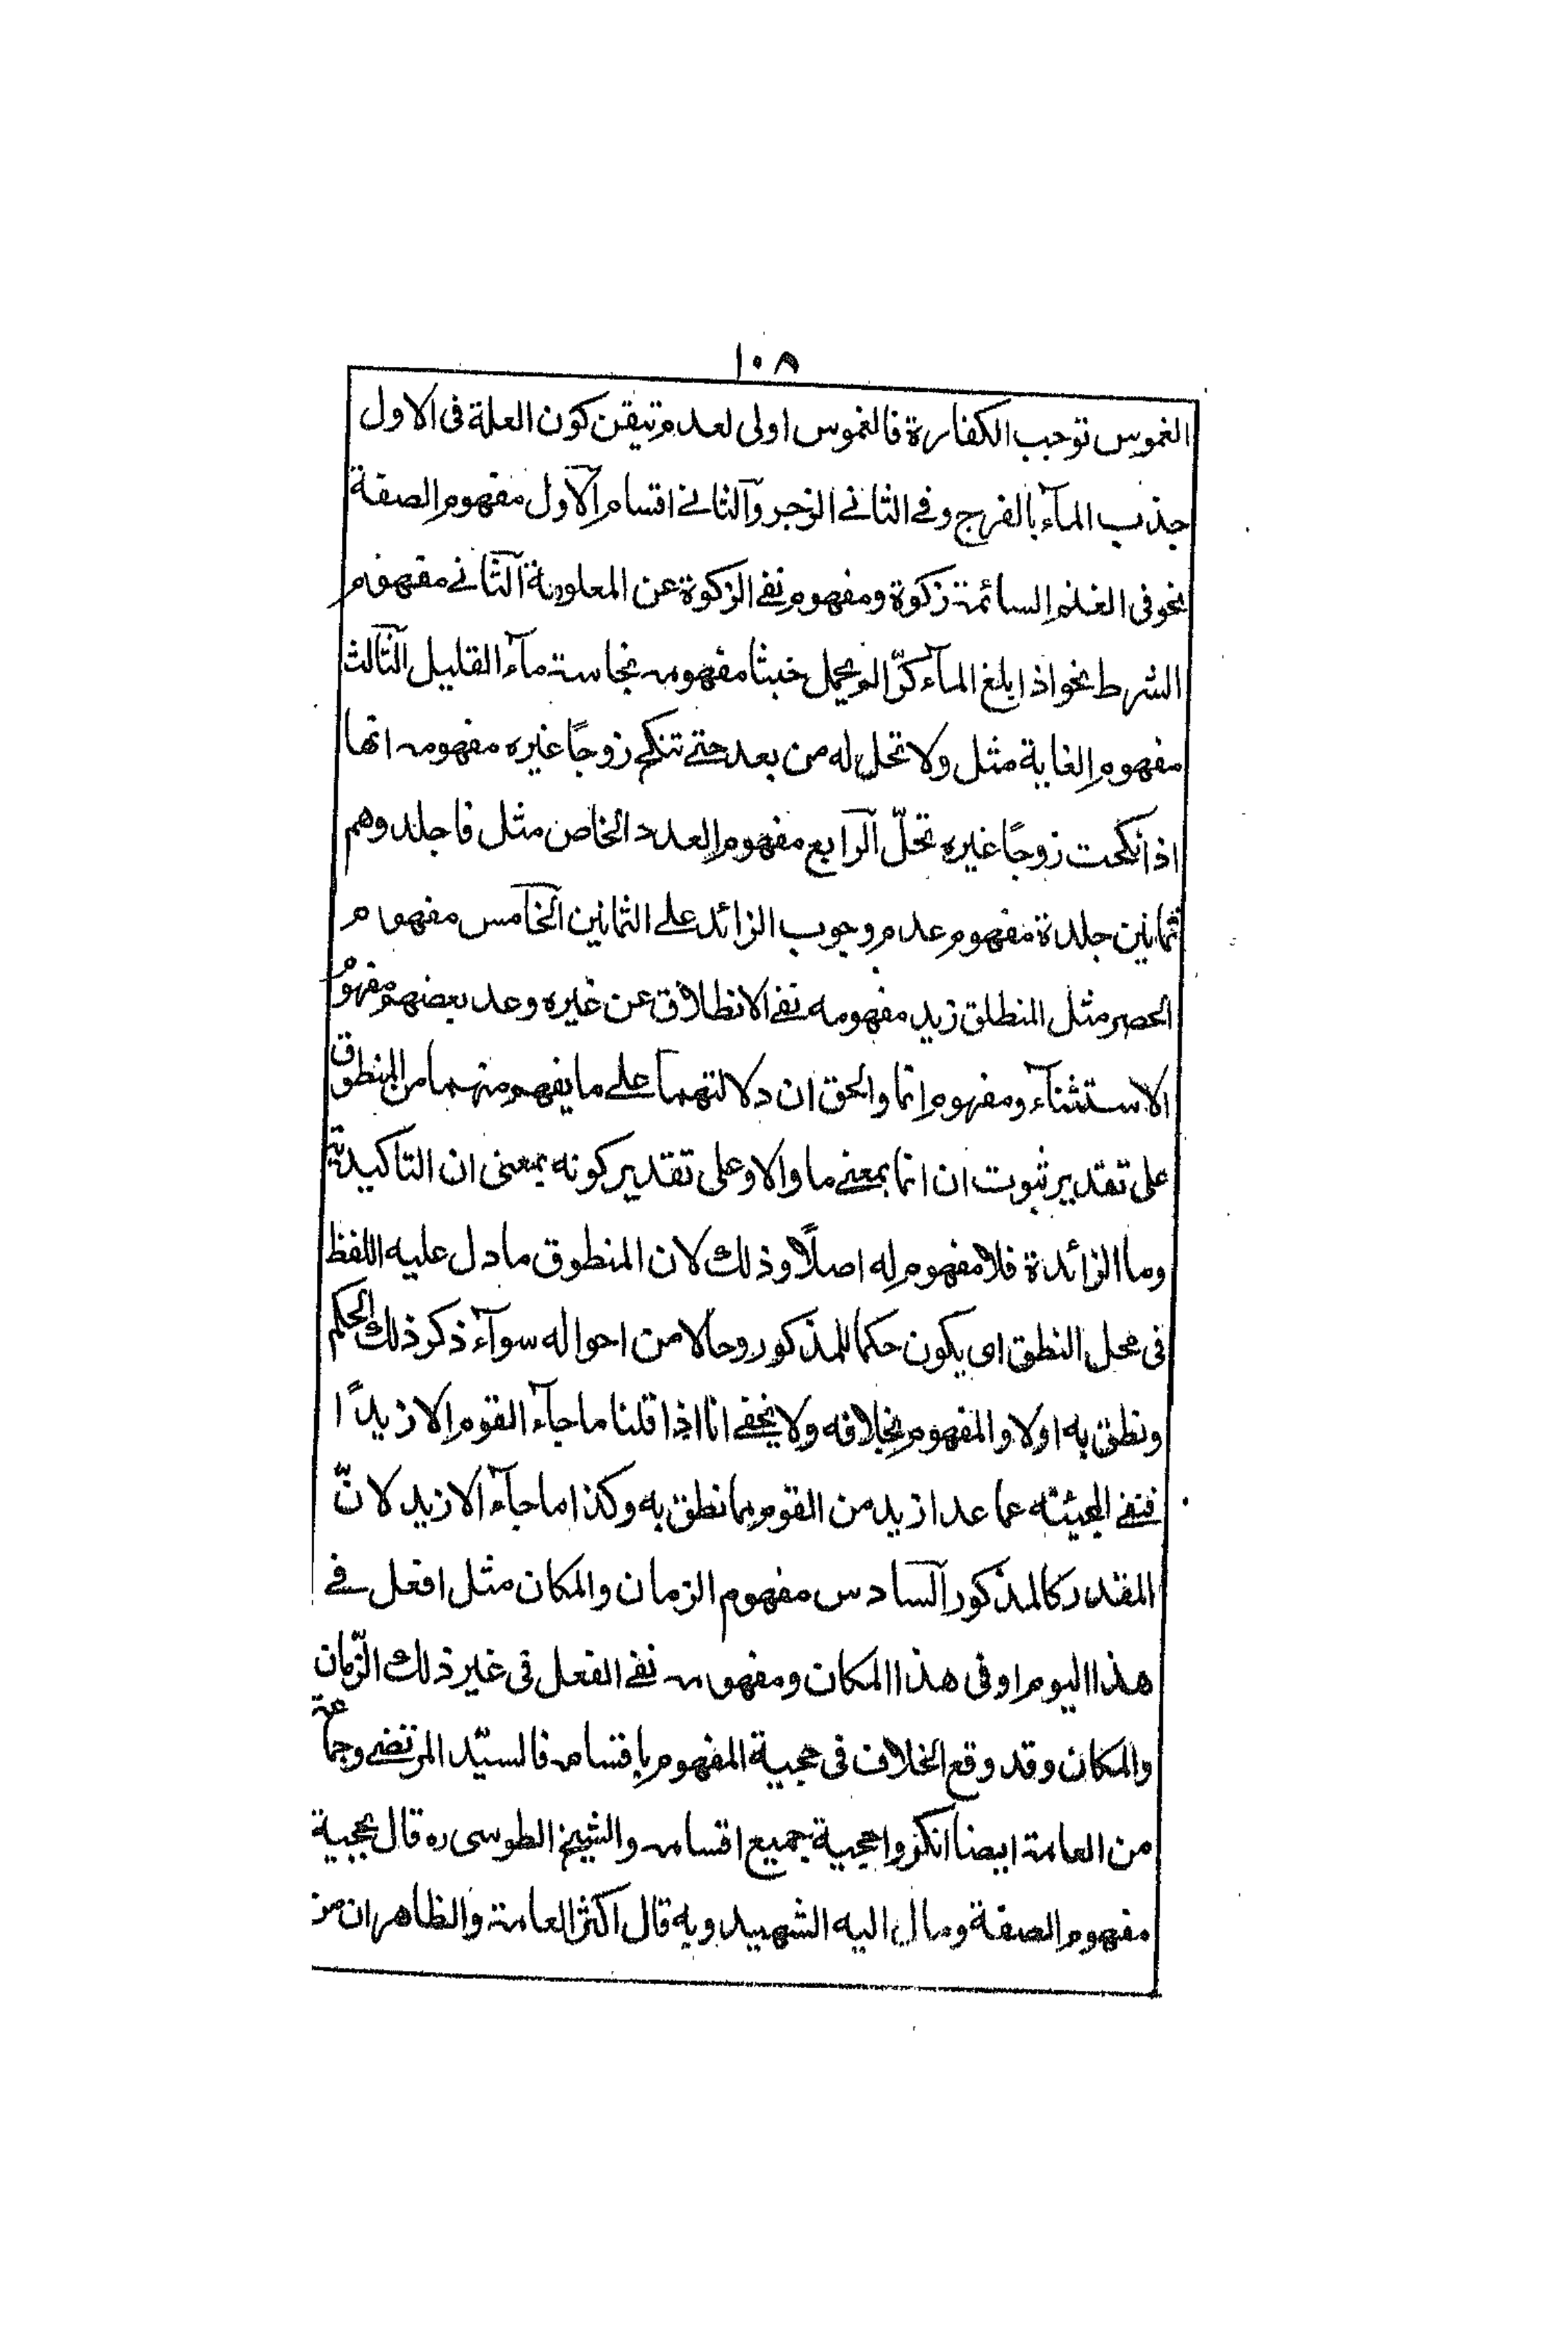 ١٠٨
الغموس توجب الكفارة فالغموس اولى لعدم تيقن كون العلة فى الاول
جذب المآء بالفرج وفے الثانے الزجر والثانے اقسام الاول مفهوم الصفة
نحو فى الغنم السائمة زكوة ومفهوم نفے الزكوة عن المعلوفة الثانے مفهوم
الشرط نحو اذا بلغ المآء كرّا لم يحمل خبثا مفهومه نجاسة مآء القليل الثالث
مفهوم الغاية مثل ولا تحل له من بعد حتے تنكح زوجًا غيره مفهومه انها
اذا نكحت زوجًا غيره تحلّ الرابع مفهوم العدد الخاص مثل فاجلدوهم
ثمانين جلدة مفهوم عدم وجوب الزائد علے الثمانين الخامس مفهوم
الحصر مثل المنطلق زيد مفهومه نفے الانطلاق عن غيره وعد بعضهم مفهومُ
الاستثنآء ومفهوم انما والحق ان دلالتهما علے ما يفهم منهما من المنطوق
على تقدير ثبوت ان انما بمعنے ما والا وعلى تقدير كونه بمعنى ان التاكيدية
وما الزائدة فلا مفهوم له اصلًا وذلك لان المنطوق ما دل عليه اللفظ
فى محل النطق اى يكون حكما للمذكور وحالا من احواله سوآء ذكر ذلك الحكم
ونطق به اولا والمفهوم بخلافه ولا يخفے انا اذا قلنا ما جآء القوم الا زيدًا
فنفے المجيئته عما عدا زيد من القوم بما نطق به وكذا ما جآء الا زيد لانّ
المقدر كالمذكور السادس مفهوم الزمان والمكان مثل افعل فے
هذا اليوم او فى هذا المكان ومفهومه نفے الفعل فى غير ذلك الزّمان
والمكان وقد وقع الخلاف فى حجية المفهوم باقسامه فالسيّد المرتضے وجماعة
من العامة ايضا انكروا حجية جميع اقسامه والشيخ الطوسى ره قال بحجية
مفهوم الصفة ومال اليه الشهيد وبه قال اكثر العامة والظاهر ان من